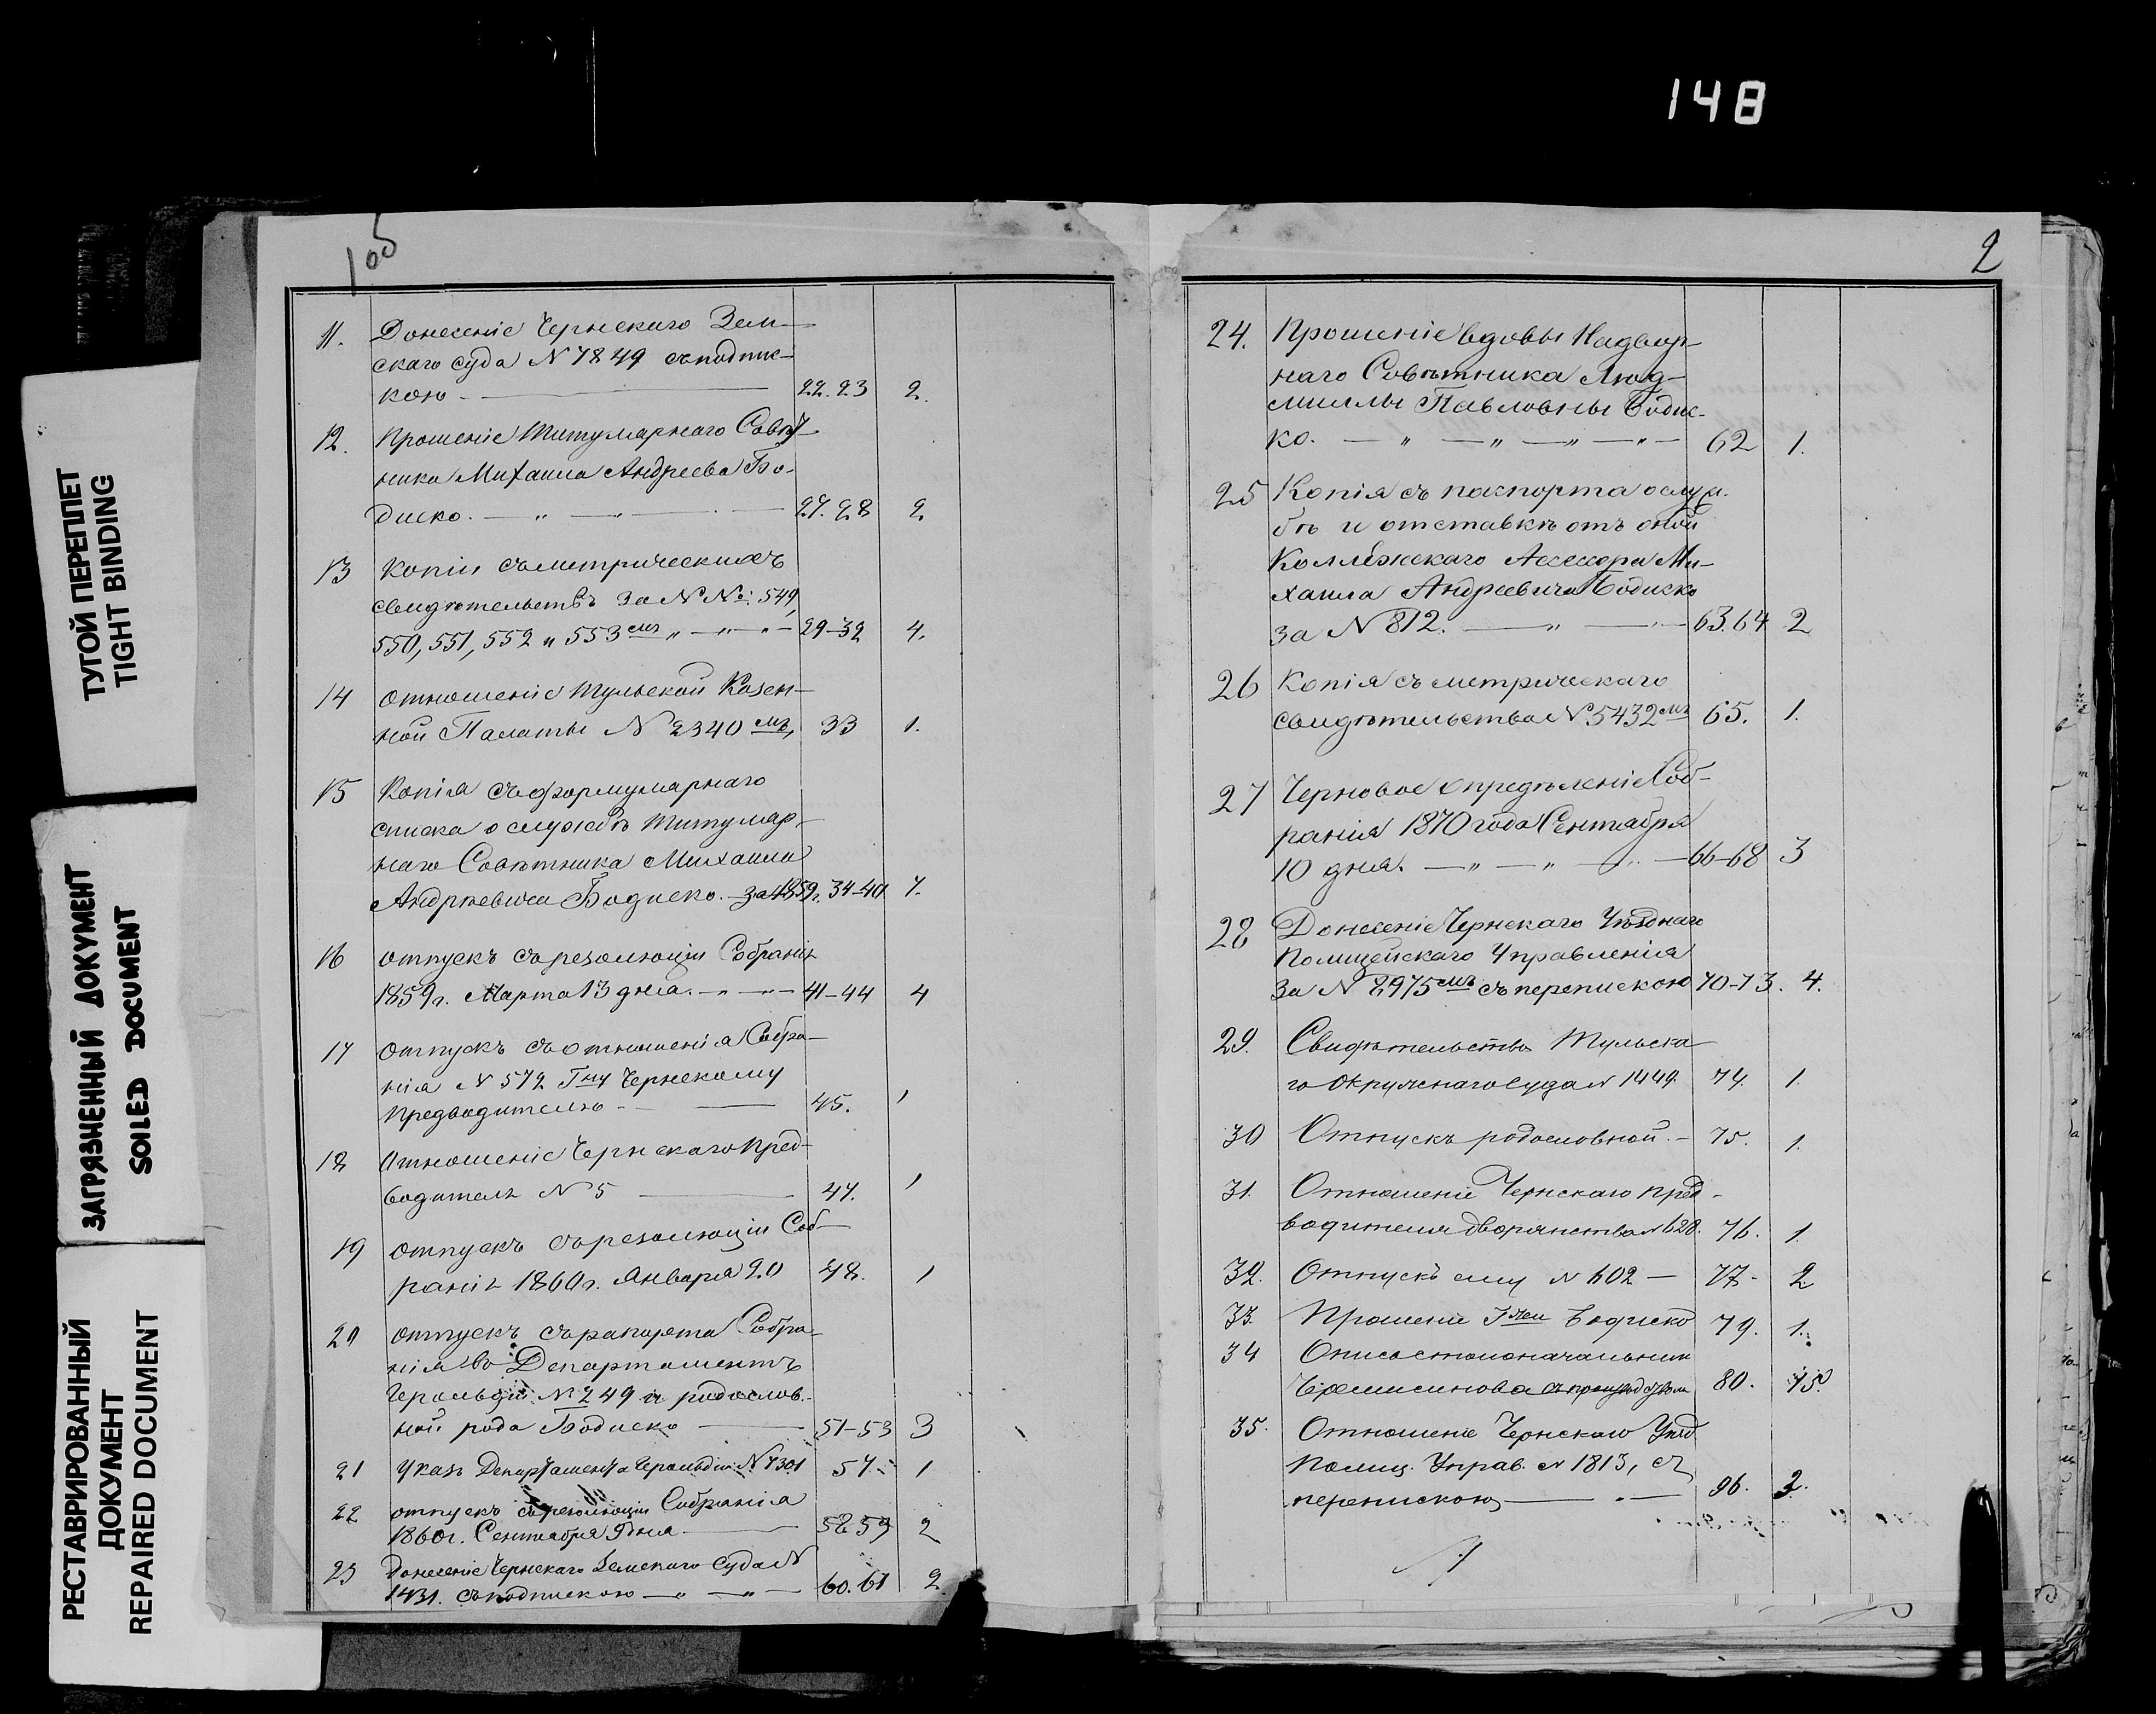 148
ТУГОЙ ПЕРЕПЛЕТ
TIGHT BINDING
ЗАГРЯЗНЕННЫЙ ДОКУМЕНТ
SOILED DOCUMENT
РЕСТАВРИРОВАННЫЙ
ДОКУМЕНТ
REPAIRED DOCUMENT
1 об
11. Донесеніе Чернскаго Зем-
скаго суда N 7849 съ подпис-
кою 22. 23 2.
12. Прошеніе Титулярнаго Совѣт-
ника Михаила Андреева Бо-
диско. 27. 28 2
13 Копіи съ метрическихъ
свидѣтельствъ за N№: 549,
550, 551, 552 и 553 мъ 29-32 4.
14 Отношеніе Тульской Казен-
ной Палаты N 2340 мъ, 33 1.
15 Копія съ формулярнаго
списка о службѣ Титуляр-
наго Совѣтника Михаила
Андреевича Бодиско. за 1859г. 34-40 7.
16 Отпускъ съ резолюціи Собранія
1859 г. Марта 13 дня. 41-44 4
17 Отпускъ съ отношенія Собра-
нія N 572 Гну Чернскому
Предводителю 45. 1
18 Отношеніе Чернскаго Пред-
водителя N 5 47. 1
19 Отпускъ съ резолюціи Соб-
ранія 1860 г. Января 20 48. 1
20 Отпускъ съ рапорта Собра-
нія въ Департаментъ
Герольдіи N 249 и родослов-
ной рода Бодиско 51-53 3
21 Указъ Департамента Герольдіи N 7301 57 1
22 Отпускъ съ резолюціи Собранія
1860 г. Сентября 9 дня 58 59 2
23 Донесеніе Чернскаго Земскаго Суда N
1431. съ подпискою 60. 61 2
2
24. Прошеніе вдовы Надвор-
наго Совѣтника Люд-
миллы Павловны Бодис-
ко. 62 1.
25 Копія съ паспорта о служ-
бѣ и отставкѣ отъ оной
Коллежскаго Асессора Ми-
хаила Андреевича Бодиско
за N 812. 63. 64 2
26 Копія съ метрическаго
свидѣтельства N 5432 мъ 65. 1.
27 Черновое опредѣленіе Соб-
ранія 1870 года Сентября
10 дня. 66-68 3
28 Донесеніе Чернскаго Уѣзднаго
Полицейскаго Управленія
за N 8975 мъ съ перепискою 70-73. 4.
29. Свидѣтельство Тульска-
го Окружнаго Суда N 1449. 74. 1.
30 Отпускъ родословной. 75. 1.
31. Отношеніе Чернскаго Пред-
водителя дворянства N 628. 76. 1.
32. Отпускъ ему N 602 77- 2
33. Прошеніе Гжи Бодиско 79. 1.
34 Опись столоначальника
80. 15
35. Отношеніе Чернскаго Уѣзд.
Полиц. Управ. N 1813, съ
перепискою 96. 2.